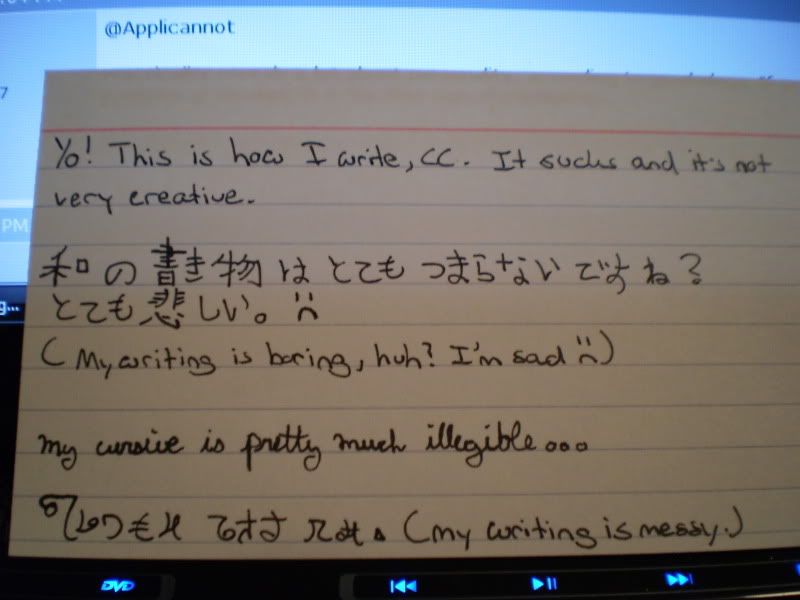 @Applicannot
7
PM
g...
Yo! This is how I write, CC. It sucks and it's not
very creative.
和の書き物はとてもつまらないですね?
とても悲しい。
(My writing is boring, huh? I'm sad )
my cursive is pretty much illegible...
(my writing is messy.)
DVD